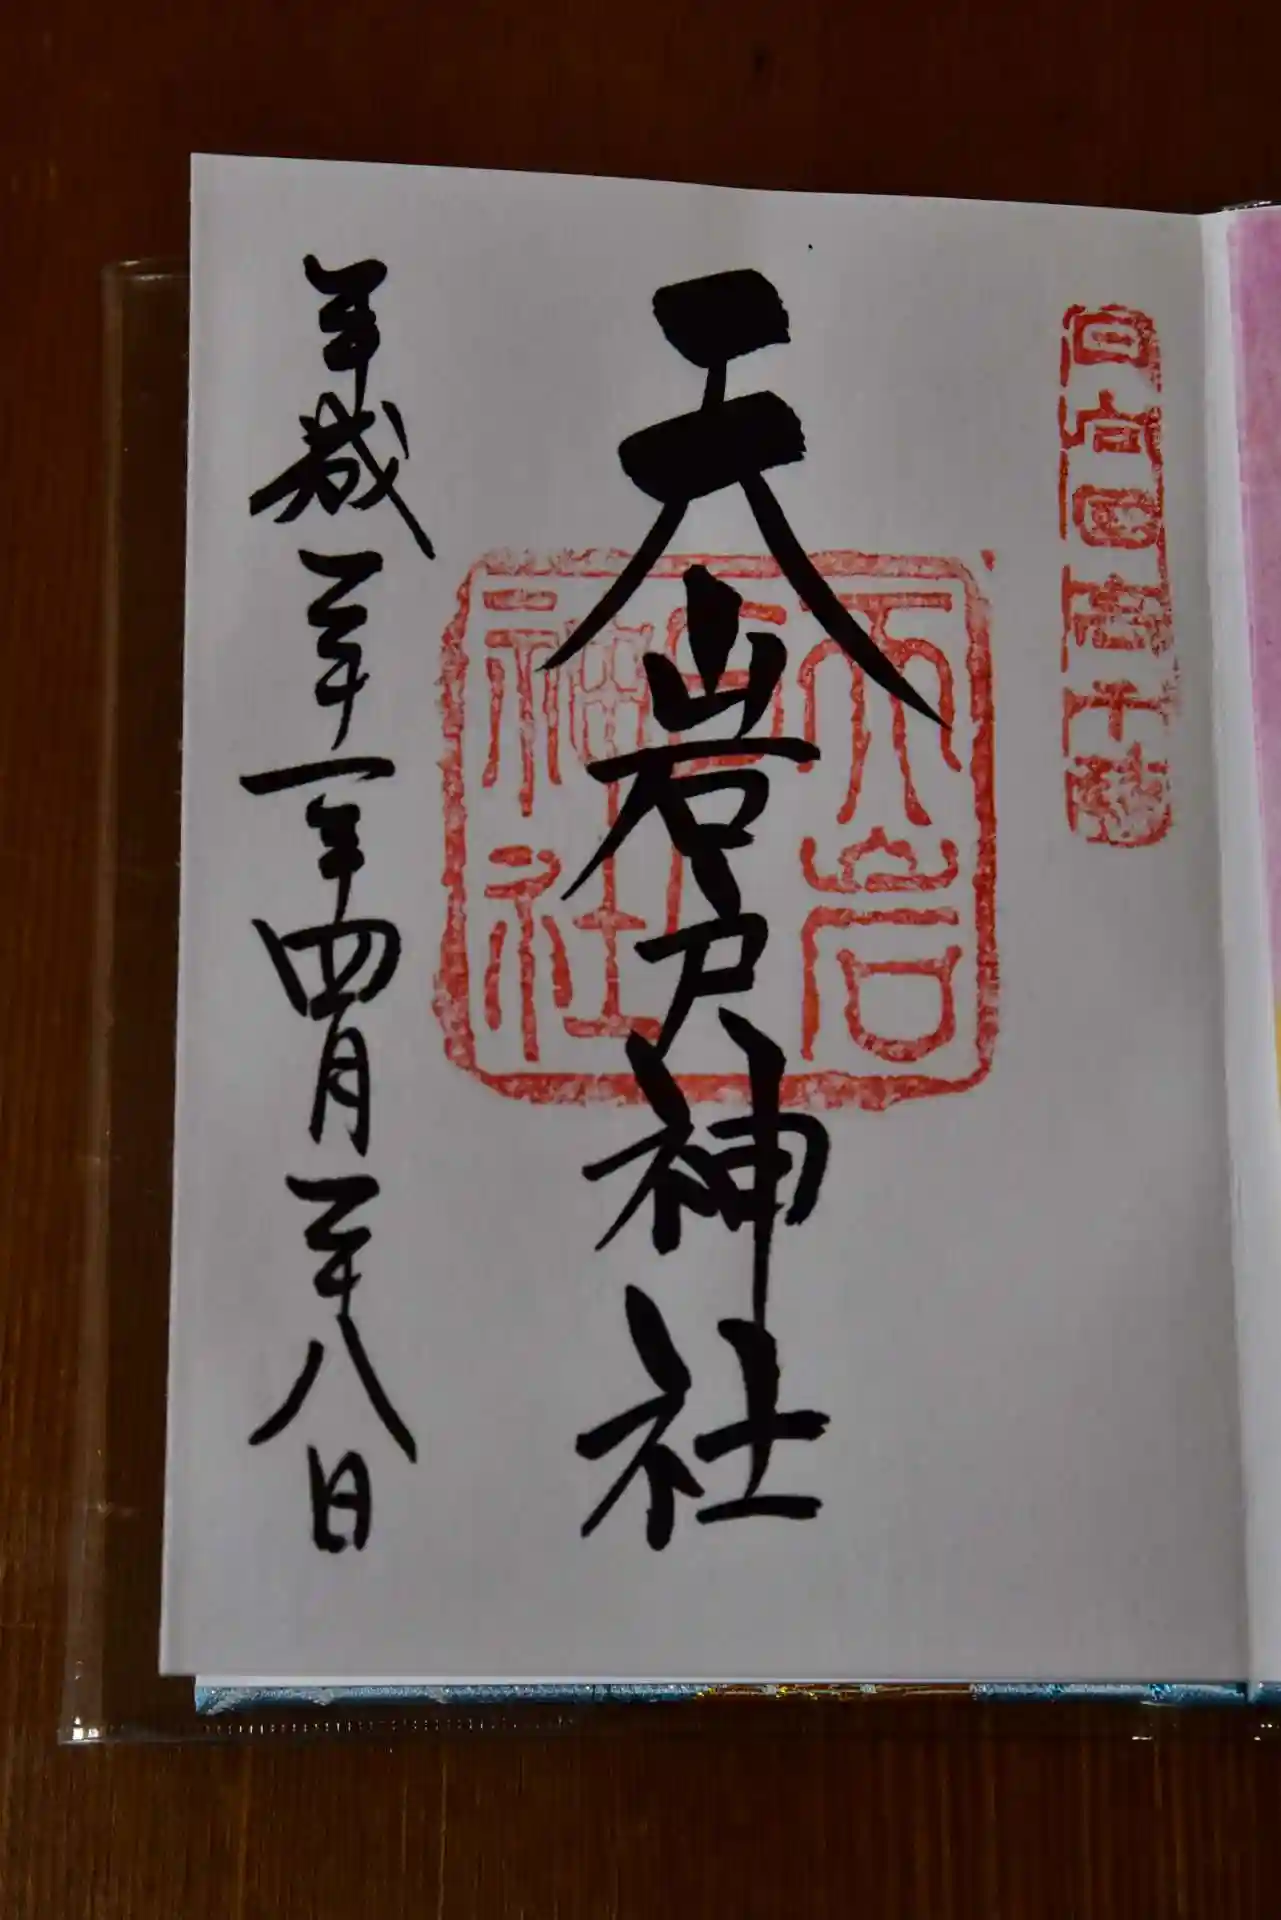 日向国高千穂
天岩戸神社
天岩戸神社
平成三十一年四月二十八日